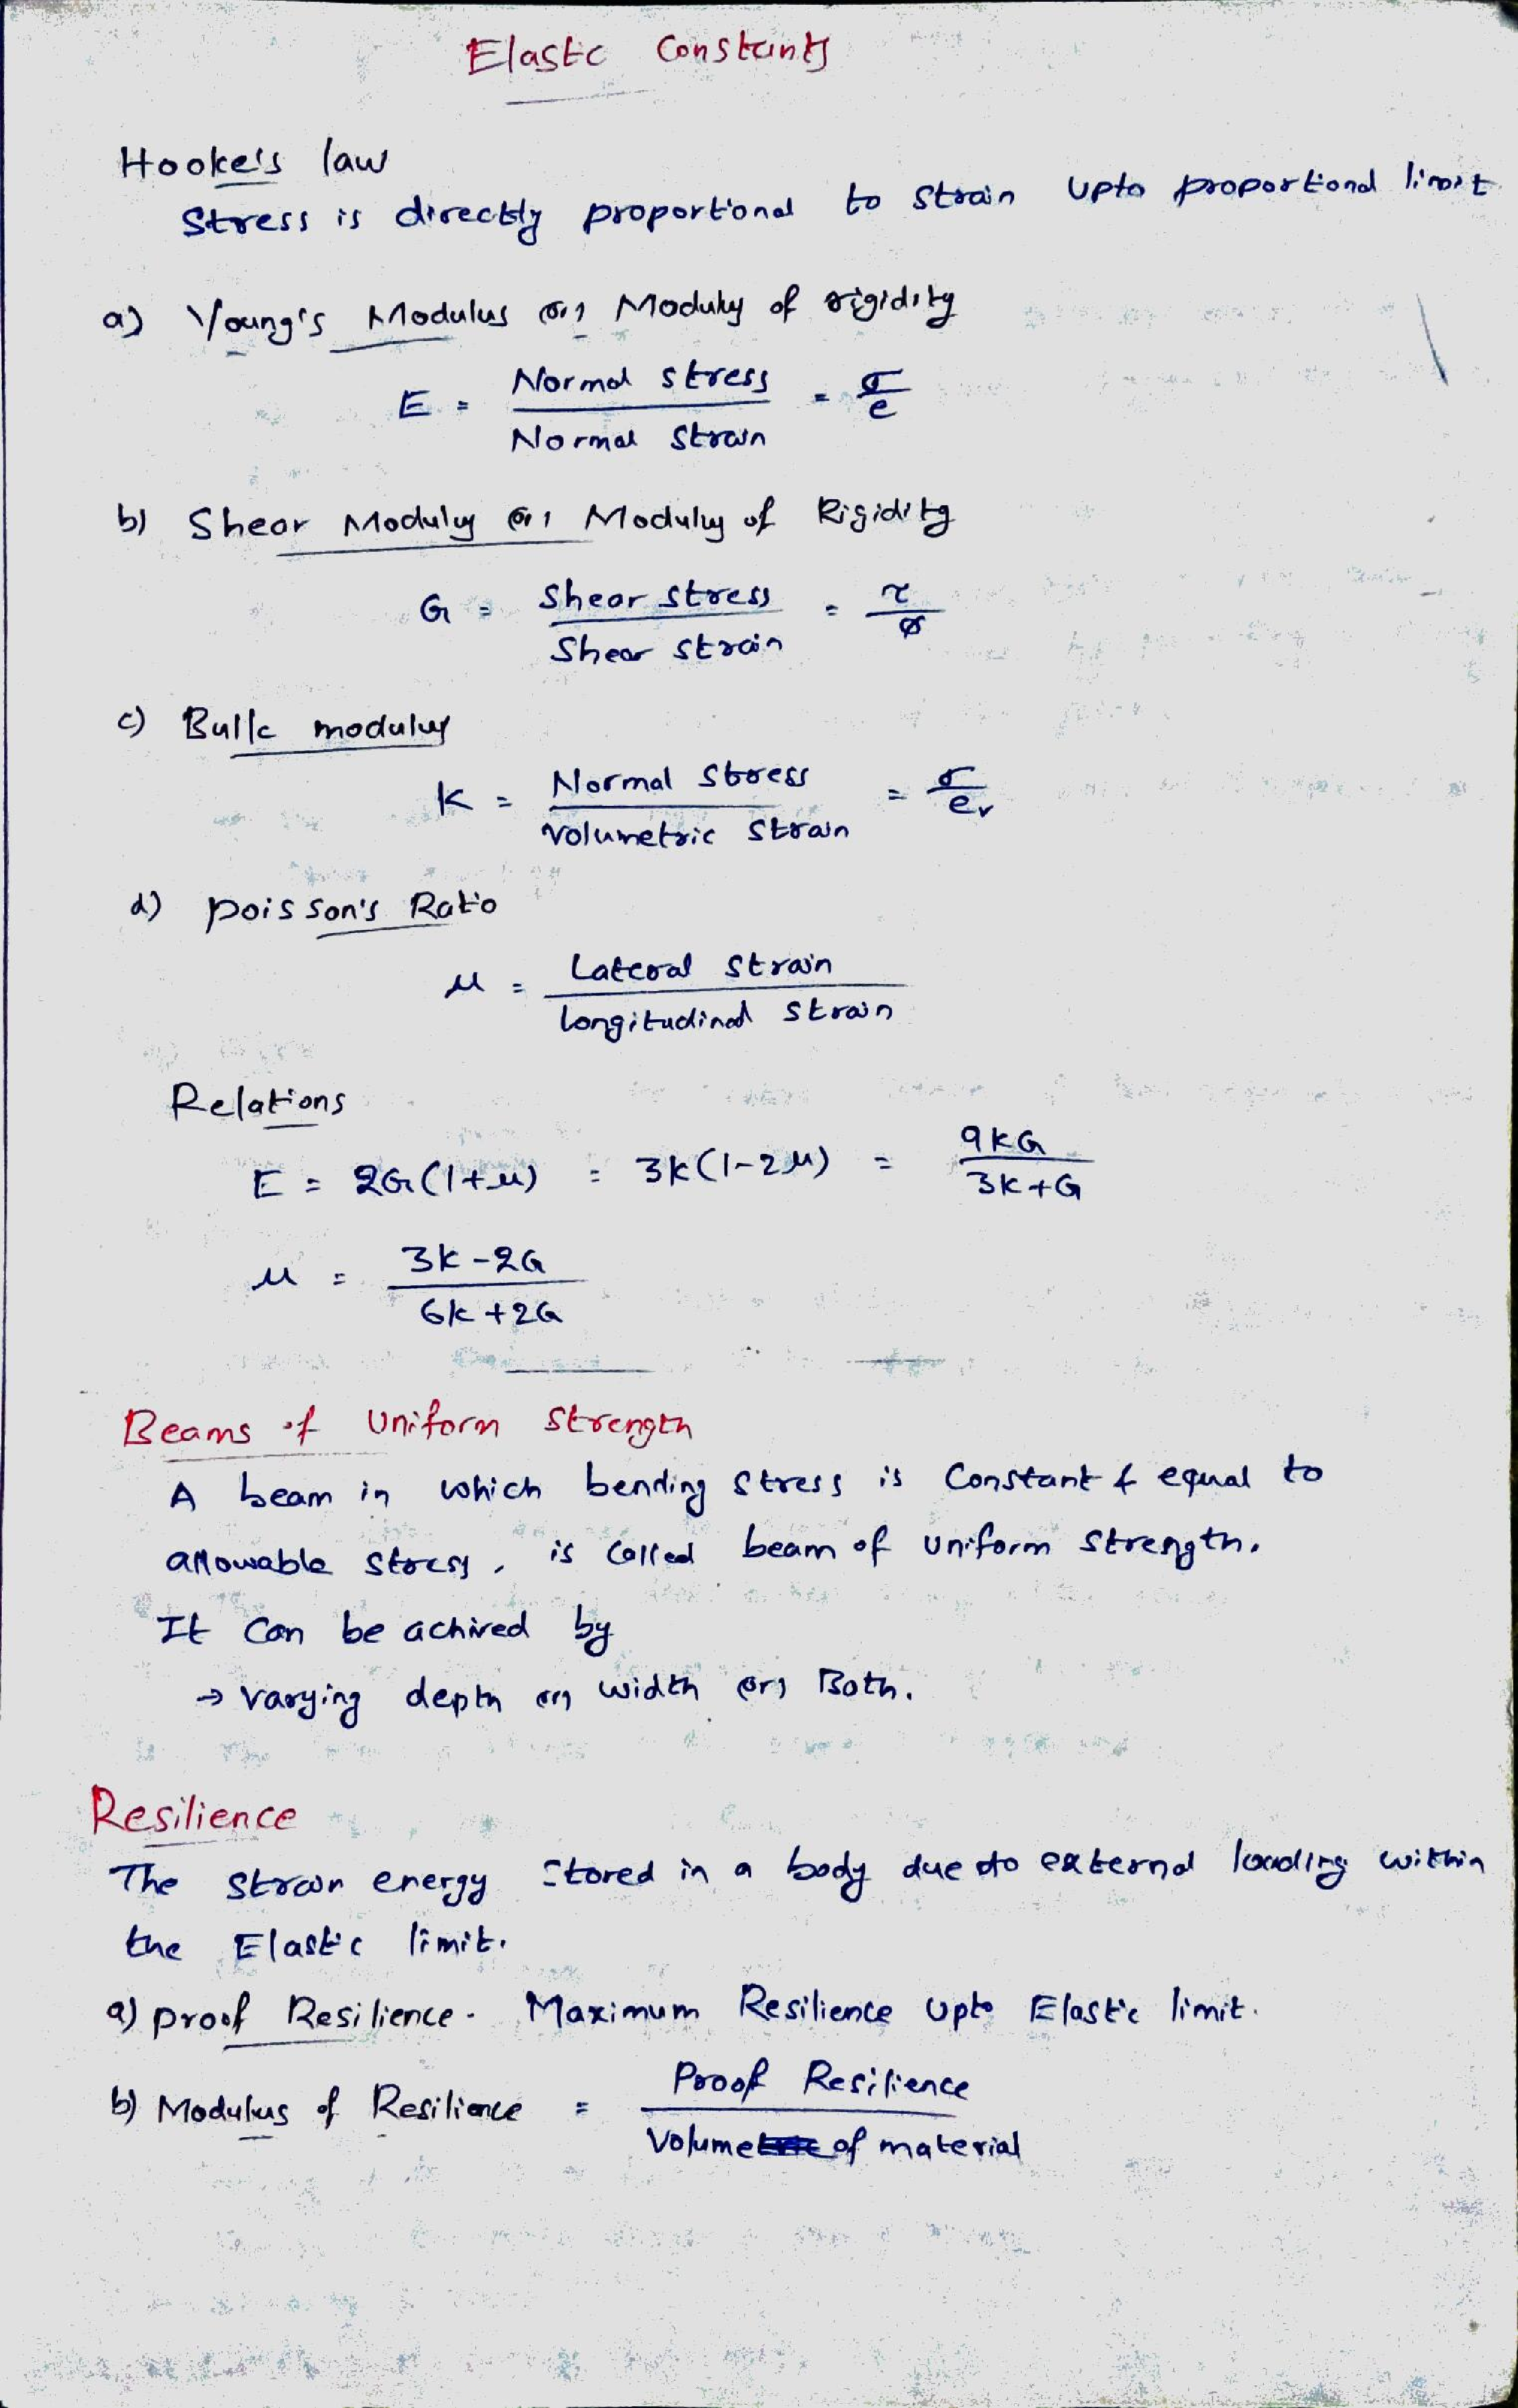 Elastic Constants
Hooke's law
Stress is directly proportional to strain upto proportional limit
a) Young's Modulus (or) Modulus of rigidity
E = Normal stress / Normal strain = σ / e
b) Shear Modulus (or) Modulus of Rigidity
G = Shear stress / Shear strain = τ / ø
c) Bulk modulus
K = Normal stress / Volumetric strain = σ / ev
d) poisson's Ratio
μ = Lateral strain / longitudinal strain
Relations
E = 2G(1+μ) = 3K(1-2μ) = 9KG / 3K+G
μ = 3K-2G / 6K+2G
Beams of Uniform Strength
A beam in which bending stress is Constant & equal to
allowable stress, is called beam of uniform strength.
It can be achived by
→ varying depth (or) width (or) Both.
Resilience
The strain energy stored in a body due to external loading within
the Elastic limit.
a) proof Resilience - Maximum Resilience upto Elastic limit.
b) Modulus of Resilience = Proof Resilience / Volume of material